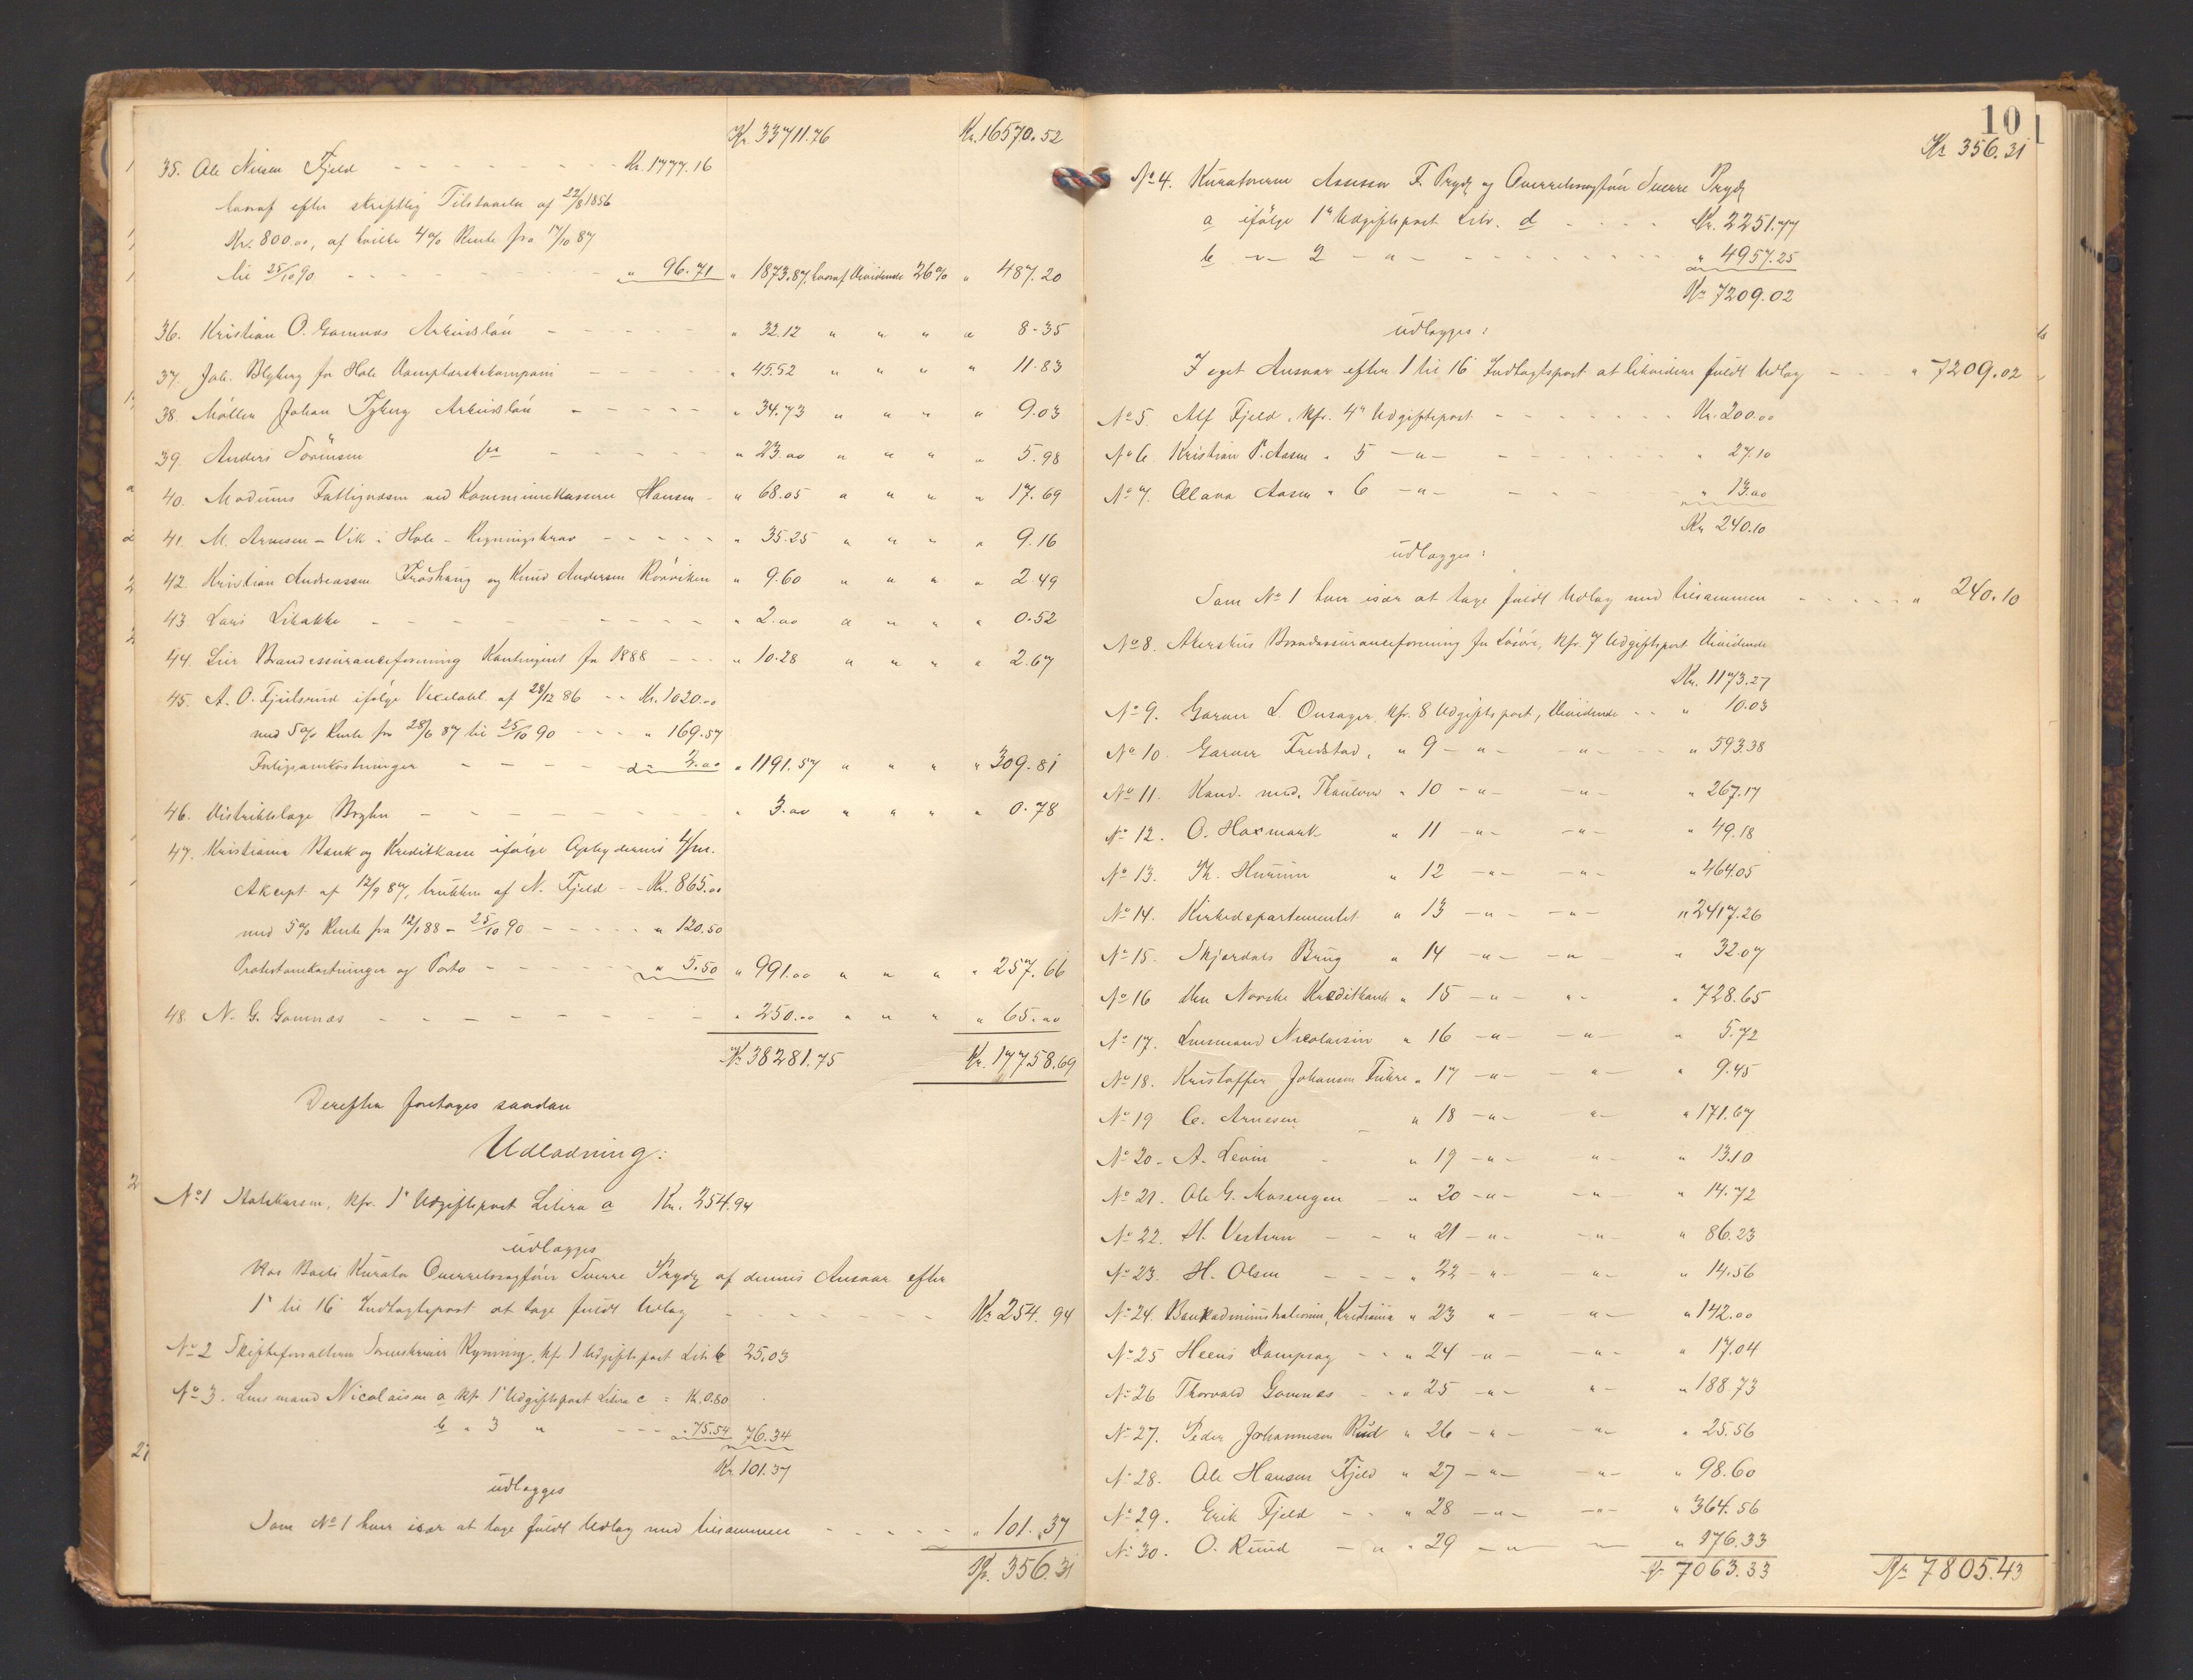 Kr. 33711.76 Kr. 16570.52
35. Ole Nilsen Fjeld - - - - - - - - Kr. 1777.16
hvoraf efter skriftlig Tilstaaelse af 22/8 1856
Kr. 800.00, af hvilke 4% Rente fra 17/10 87
til 25/10 90 - - - - - - - - " 96.71 " 1873.87, hvoraf Dividende 26% " 487.20
36. Kristian O. Gomnæs Arbeidsløn - - - - - " 32.12 " " " " 8.35
37. Joh. Blyberg for Hole Damptærskekompani - - - - - " 45.52 " " " " 11.83
38. Møller Johan Tyberg Arbeidsløn - - - - - " 34.73 " " " " 9.03
39. Anders Sørensen do - - - - - " 23.00 " " " " 5.98
40. Modums Fattigvæsen ved Kommunekasserer Hansen - " 68.05 " " " " 17.69
41. M. Arnesen - Vik i Hole - Regningskrav - - - - - " 35.25 " " " " 9.16
42. Kristian Andreassen Frøshaug og Knud Andersen Rørviken " 9.60 " " " " 2.49
43. Lars Libakke - - - - - - - - - " 2.00 " " " " 0.52
44. Lier Brandassuranceforening Kontingent for 1888 - - - " 10.28 " " " " 2.67
45. A. O. Fjulsrud ifølge Vexelobl. af 28/12 86 - - Kr. 1020.00
med 5% Rente fra 28/6 87 til 25/10 90 - - - - " 169.57
Forligsomkostninger - - - - - " 2.00 " 1191.57 " " " " 309.81
46. Distriktslæge Bryhn - - - - - - - - " 3.00 " " " " 0.78
47. Kristiania Bank og Kreditkasse ifølge
Akcept af 12/9 87, trukken af N. Fjeld - - Kr. 865.00
med 5% Rente fra 12/1 88 - 25/10 90 - - - - - " 120.50
Protestomkostninger og Porto - - - - - " 5.50 " 991.00 " " " " 257.66
48. N. G. Gomnæs - - - - - - - - - " 250.00 " " " " 65.00
Kr. 38281.75 Kr. 17758.69
Derefter foretages saadan
Udlodning:
No 1 Statskassen, kfr. 1ste Udgiftspost Litera a Kr. 254.94
udlægges
Hos Boets Kurator Overretssagfører Sverre Pryds af dennes Ansvar efter
1ste til 16de Indtægtspost at tage fuldt Udlæg - - - - - - - - Kr. 254.94
No 2 Skifteforvalteren Sorenskriver Rynning, kfr. 1 Udgiftspost Lit. b 25.03
No 3. Lensmand Nicolaisen a kfr. 1ste Udgiftspost Litera c = Kr. 0.80
b " 3 " - - - " 75.54 76.34
Kr. 101.37
udlægges
Som No 1 hver især at tage fuldt Udlæg med tilsammen - - - - - " 101.37
Kr. 356.31
10
Kr. 356.31
No 4. Kuratorerne Assessor F. Pryds og Overretssagfører Sverre Pryds
a ifølge 1ste Udgiftspost Litr. d - - - - Kr. 2251.77
b - " - 2 - " - - - - - - - " 4957.25
Kr. 7209.02
udlægges:
I eget Ansvar efter 1 til 16 Indtægtspost at likvidere fuldt Udlæg - - - " 7209.02
No 5. Alf Fjeld, kfr. 4de Udgiftspost - - - - - - - Kr. 200.00
No 6. Kristian P. Aasen " 5 - " - - - - - - - " 27.10
No 7. Olava Aasen " 6 - " - - - - " 13.00
Kr. 240.10
udlægges:
Som No 1 hver især at tage fuldt Udlæg med tilsammen - - - - - " 240.10
No 8. Akershus Brandassuranceforening for Løsøre, kfr. 7 Udgiftspost Dividende
Kr. 1173.27
No 9. Garver L. Onsager, kfr. 8 Udgiftspost, Dividende - - " 10.03
No 10. Garver Fredstad, " 9 - " - - " - - - " 593.38
No 11. Kand. med. Thaulow " 10 - " - - " - " 267.17
No 12. O. Hoxmark " 11 - " - - " - " 49.18
No 13. Th. Hurum " 12 - " - - " - " 464.05
No 14. Kirkedepartementet " 13 - " - - " - " 2417.26
No 15. Skjærdals Brug " 14 - " - - " - " 32.07
No 16 Den Norske Kreditbank " 15 - " - " - " 728.65
No 17. Lensmand Nicolaisen " 16 - " - - " - " 5.72
No 18. Kristoffer Johansen Fuhre " 17 - " - - " - " 9.45
No 19 C. Arnesen " 18 - " - " - " 171.67
No 20. A. Levin - " 19 - " - " - " 13.10
No 21. Ole G. Mosengen - " 20 - " - - " - " 14.72
No 22. H. Vestern - - " 21 - " - - " - " 86.23
No 23. H. Olsen - - - " 22 - " - - " - " 14.56
No 24. Bankadministrationen, Kristiania " 23 " - " - " 142.00
No 25 Heens Dampsag - - " 24 - " - - " - " 17.04
No 26 Thorvald Gomnes - - " 25 - " - " - " 188.73
No 27. Peder Johannesen Rud " 26 - " - - " - " 25.56
No 28. Ole Hansen Fjeld " 27 - " - - " - " 98.60
No 29. Erik Fjeld - - " 28 - " - - " - " 364.56
No 30. O. Ruud - " " 29 - " - " 176.33
Kr. 7063.33 Kr. 7805.43